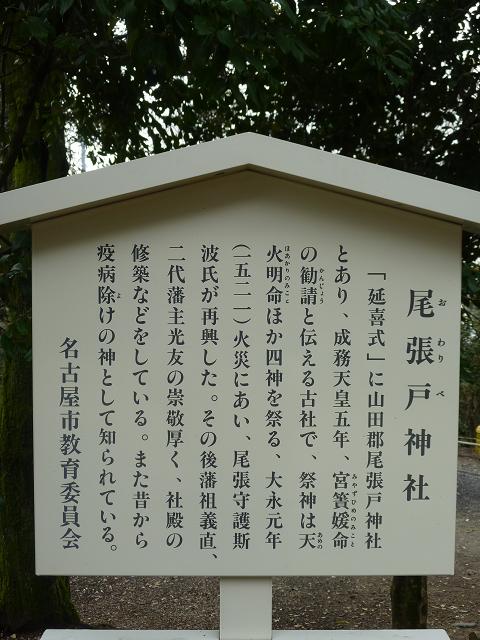 尾張戸神社
おわりべ
「延喜式」に山田郡尾張戸神社
とあり、成務天皇五年、宮簀媛命
みやずひめのみこと
の勧請と伝える古社で、祭神は天
かんじょう
あめの
火明命ほか四神を祭る、大永元年
ほあかりのみこと
(一五二一)火災にあい、尾張守護斯
波氏が再興した。その後藩祖義直、
二代藩主光友の崇敬厚く、社殿の
修築などをしている。また昔から
疫病除けの神として知られている。
よ
名古屋市教育委員会